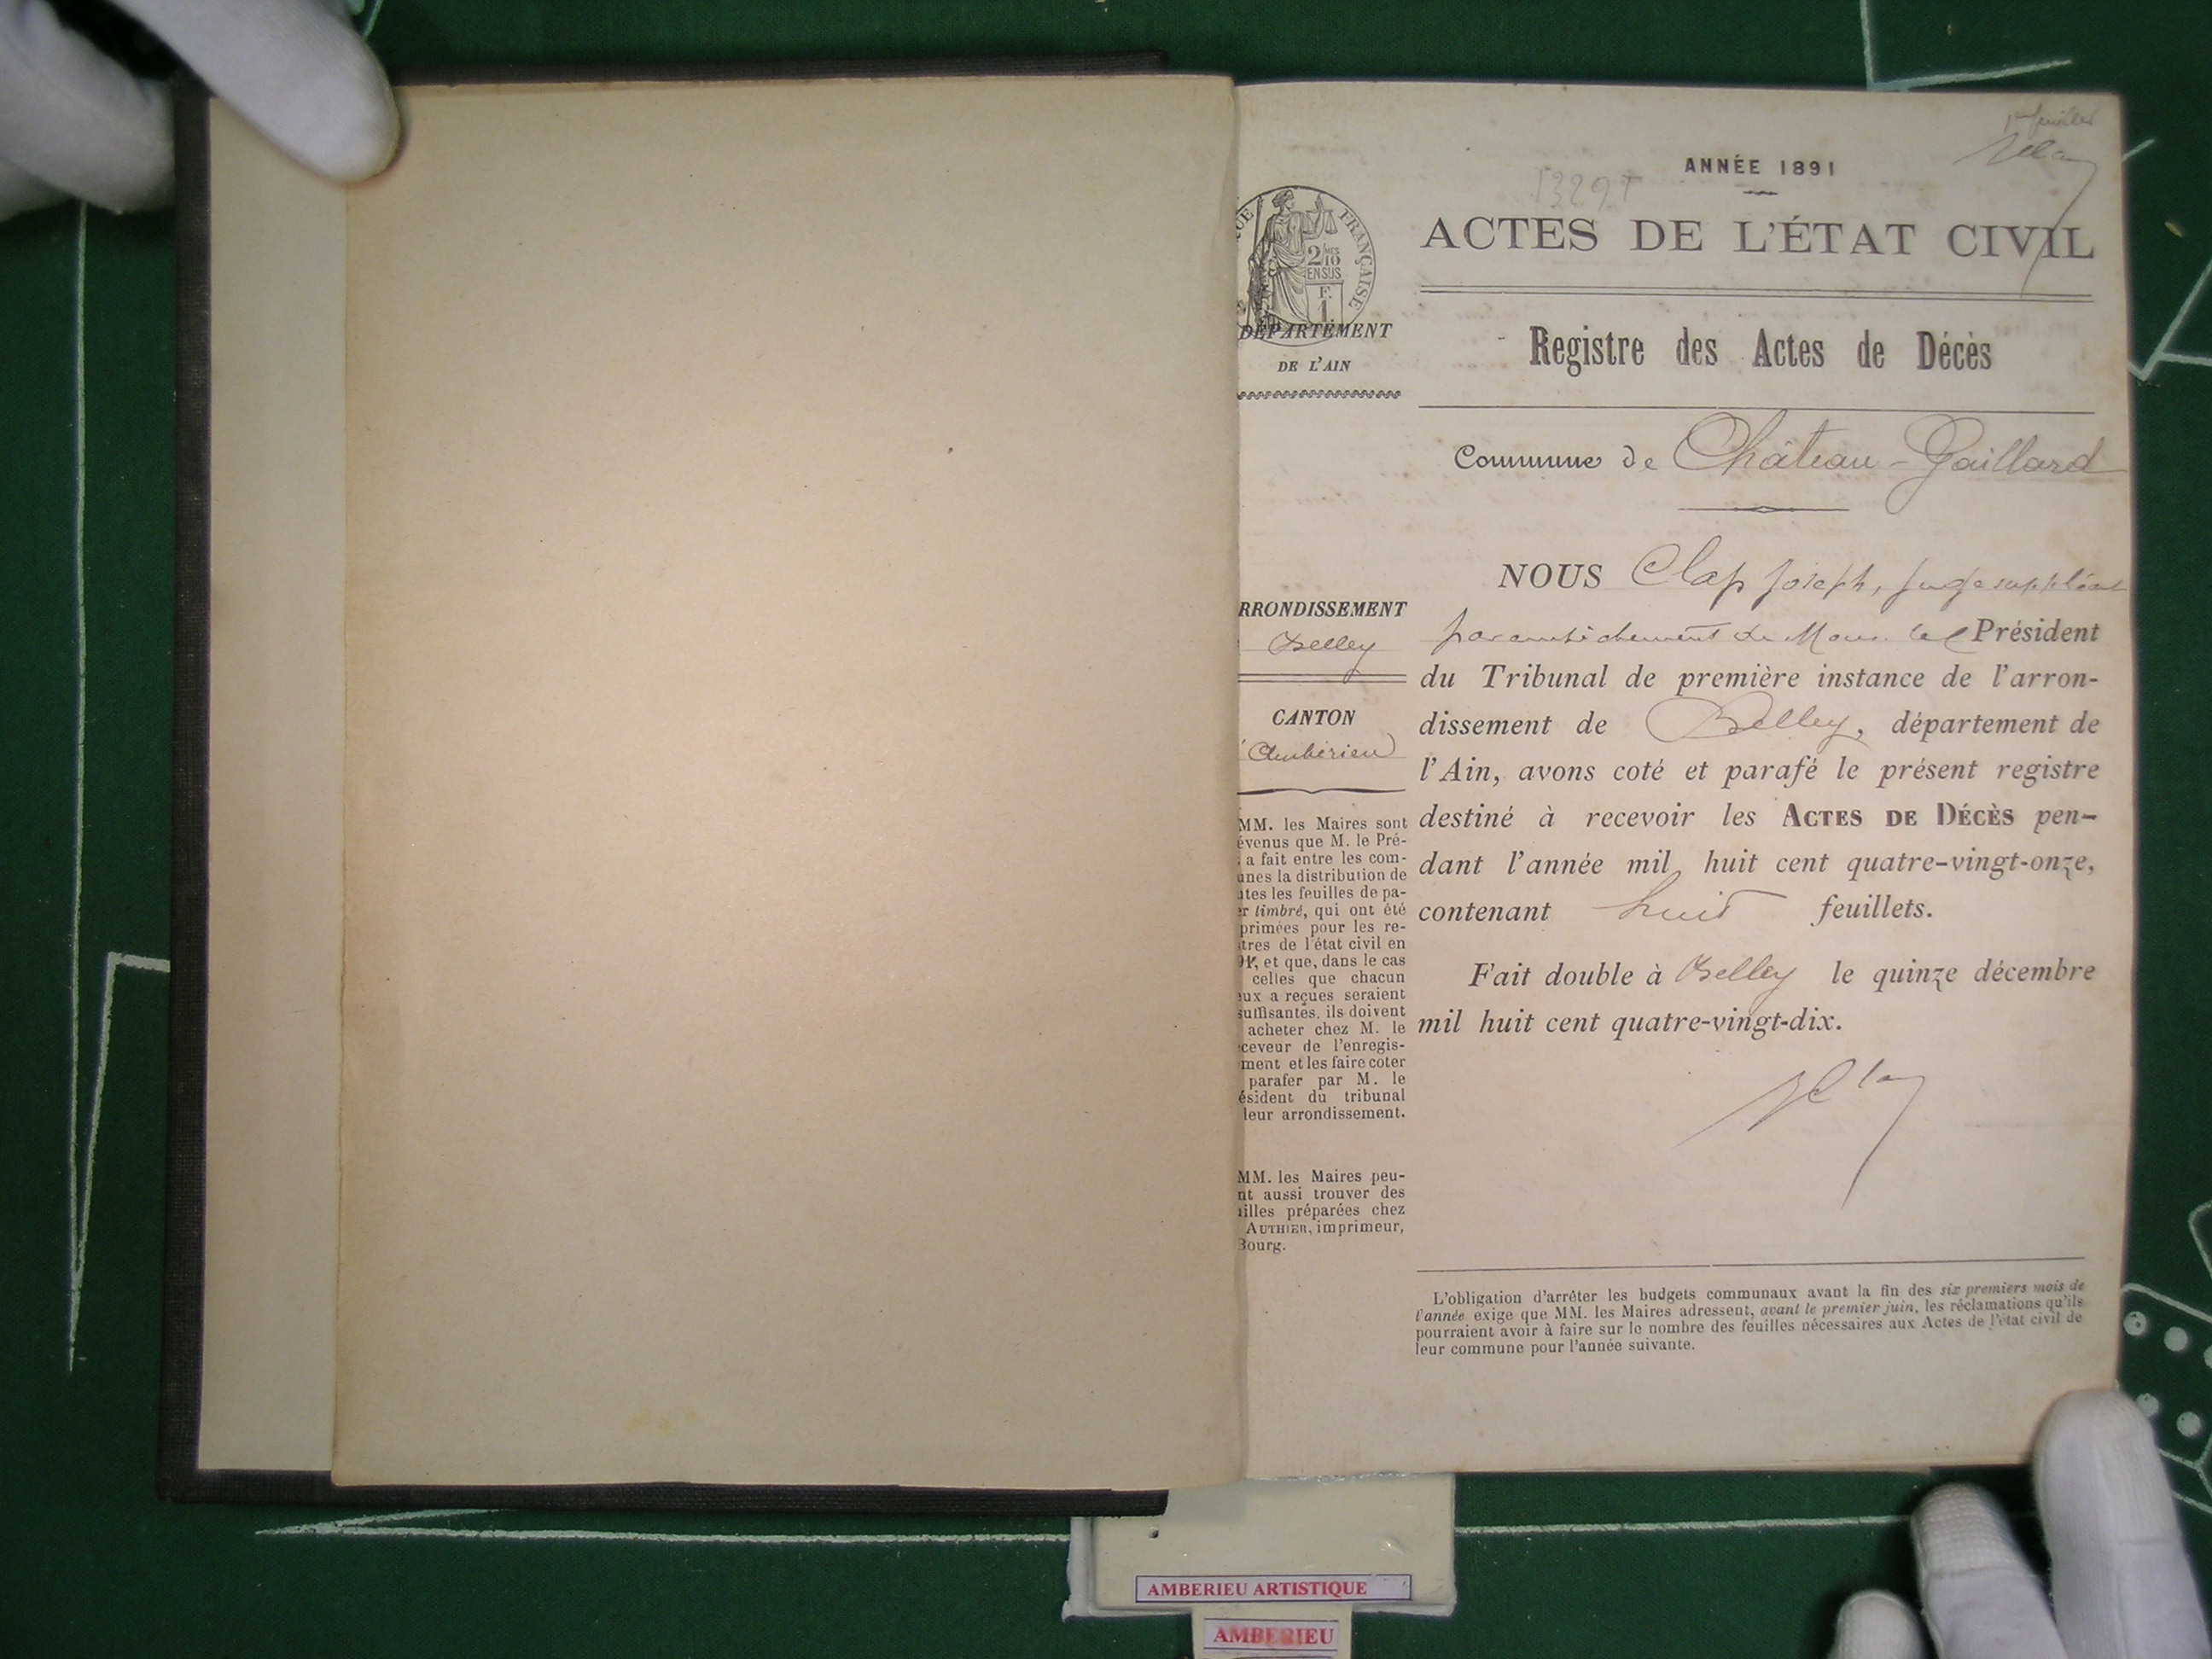 1er feuillet
ANNÉE 1891
1329
ACTES DE L'ÉTAT CIVIL
UE FRANÇAISE
2/10
EN SUS
F.
1
DÉPARTEMENT
DE L'AIN
Registre des Actes de Décès
Commune de Château-Gaillard
RRONDISSEMENT
Belley
CANTON
Ambérieu
MM. les Maires sont
évenus que M. le Pré-
a fait entre les com-
unes la distribution de
utes les feuilles de pa-
er timbré, qui ont été
primées pour les re-
tres de l'état civil en
91, et que, dans le cas
celles que chacun
eux a reçues seraient
suffisantes, ils doivent
acheter chez M. le
ceveur de l'enregis-
ment et les faire coter
parafer par M. le
ésident du tribunal
leur arrondissement.
MM. les Maires peu-
nt aussi trouver des
uilles préparées chez
AUTHIER, imprimeur,
Bourg.
NOUS Clap Joseph, juge suppléant
par empêchement de Mons. le Président
du Tribunal de première instance de l'arron-
dissement de Belley, département de
l'Ain, avons coté et parafé le présent registre
destiné à recevoir les ACTES DE DÉCÈS pen-
dant l'année mil huit cent quatre-vingt-onze,
contenant huit feuillets.
Fait double à Belley le quinze décembre
mil huit cent quatre-vingt-dix.
L'obligation d'arrêter les budgets communaux avant la fin des six premiers mois de
l'année exige que MM. les Maires adressent, avant le premier juin, les réclamations qu'ils
pourraient avoir à faire sur le nombre des feuilles nécessaires aux Actes de l'état civil de
leur commune pour l'année suivante.
AMBERIEU ARTISTIQUE
AMBERIEU